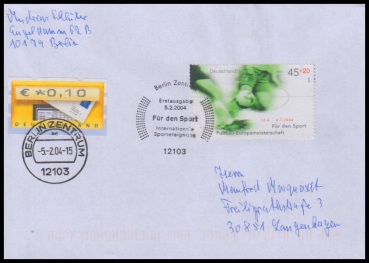 Engeldamm 62 B
10179 Berlin
€ *0,10
DEUTSCHLAND
BERLIN ZENTRUM
-5-2.04-15
12103
Berlin Zentrum
Erstausgabe
5.2.2004
Für den Sport
Internationale
Sportereignisse
12103
Deutschland
45+20
Für den Sport
Fußball-Europameisterschaft
Herrn
Manfred Marquardt
Freiligrathstraße 3
30851 Langenhagen